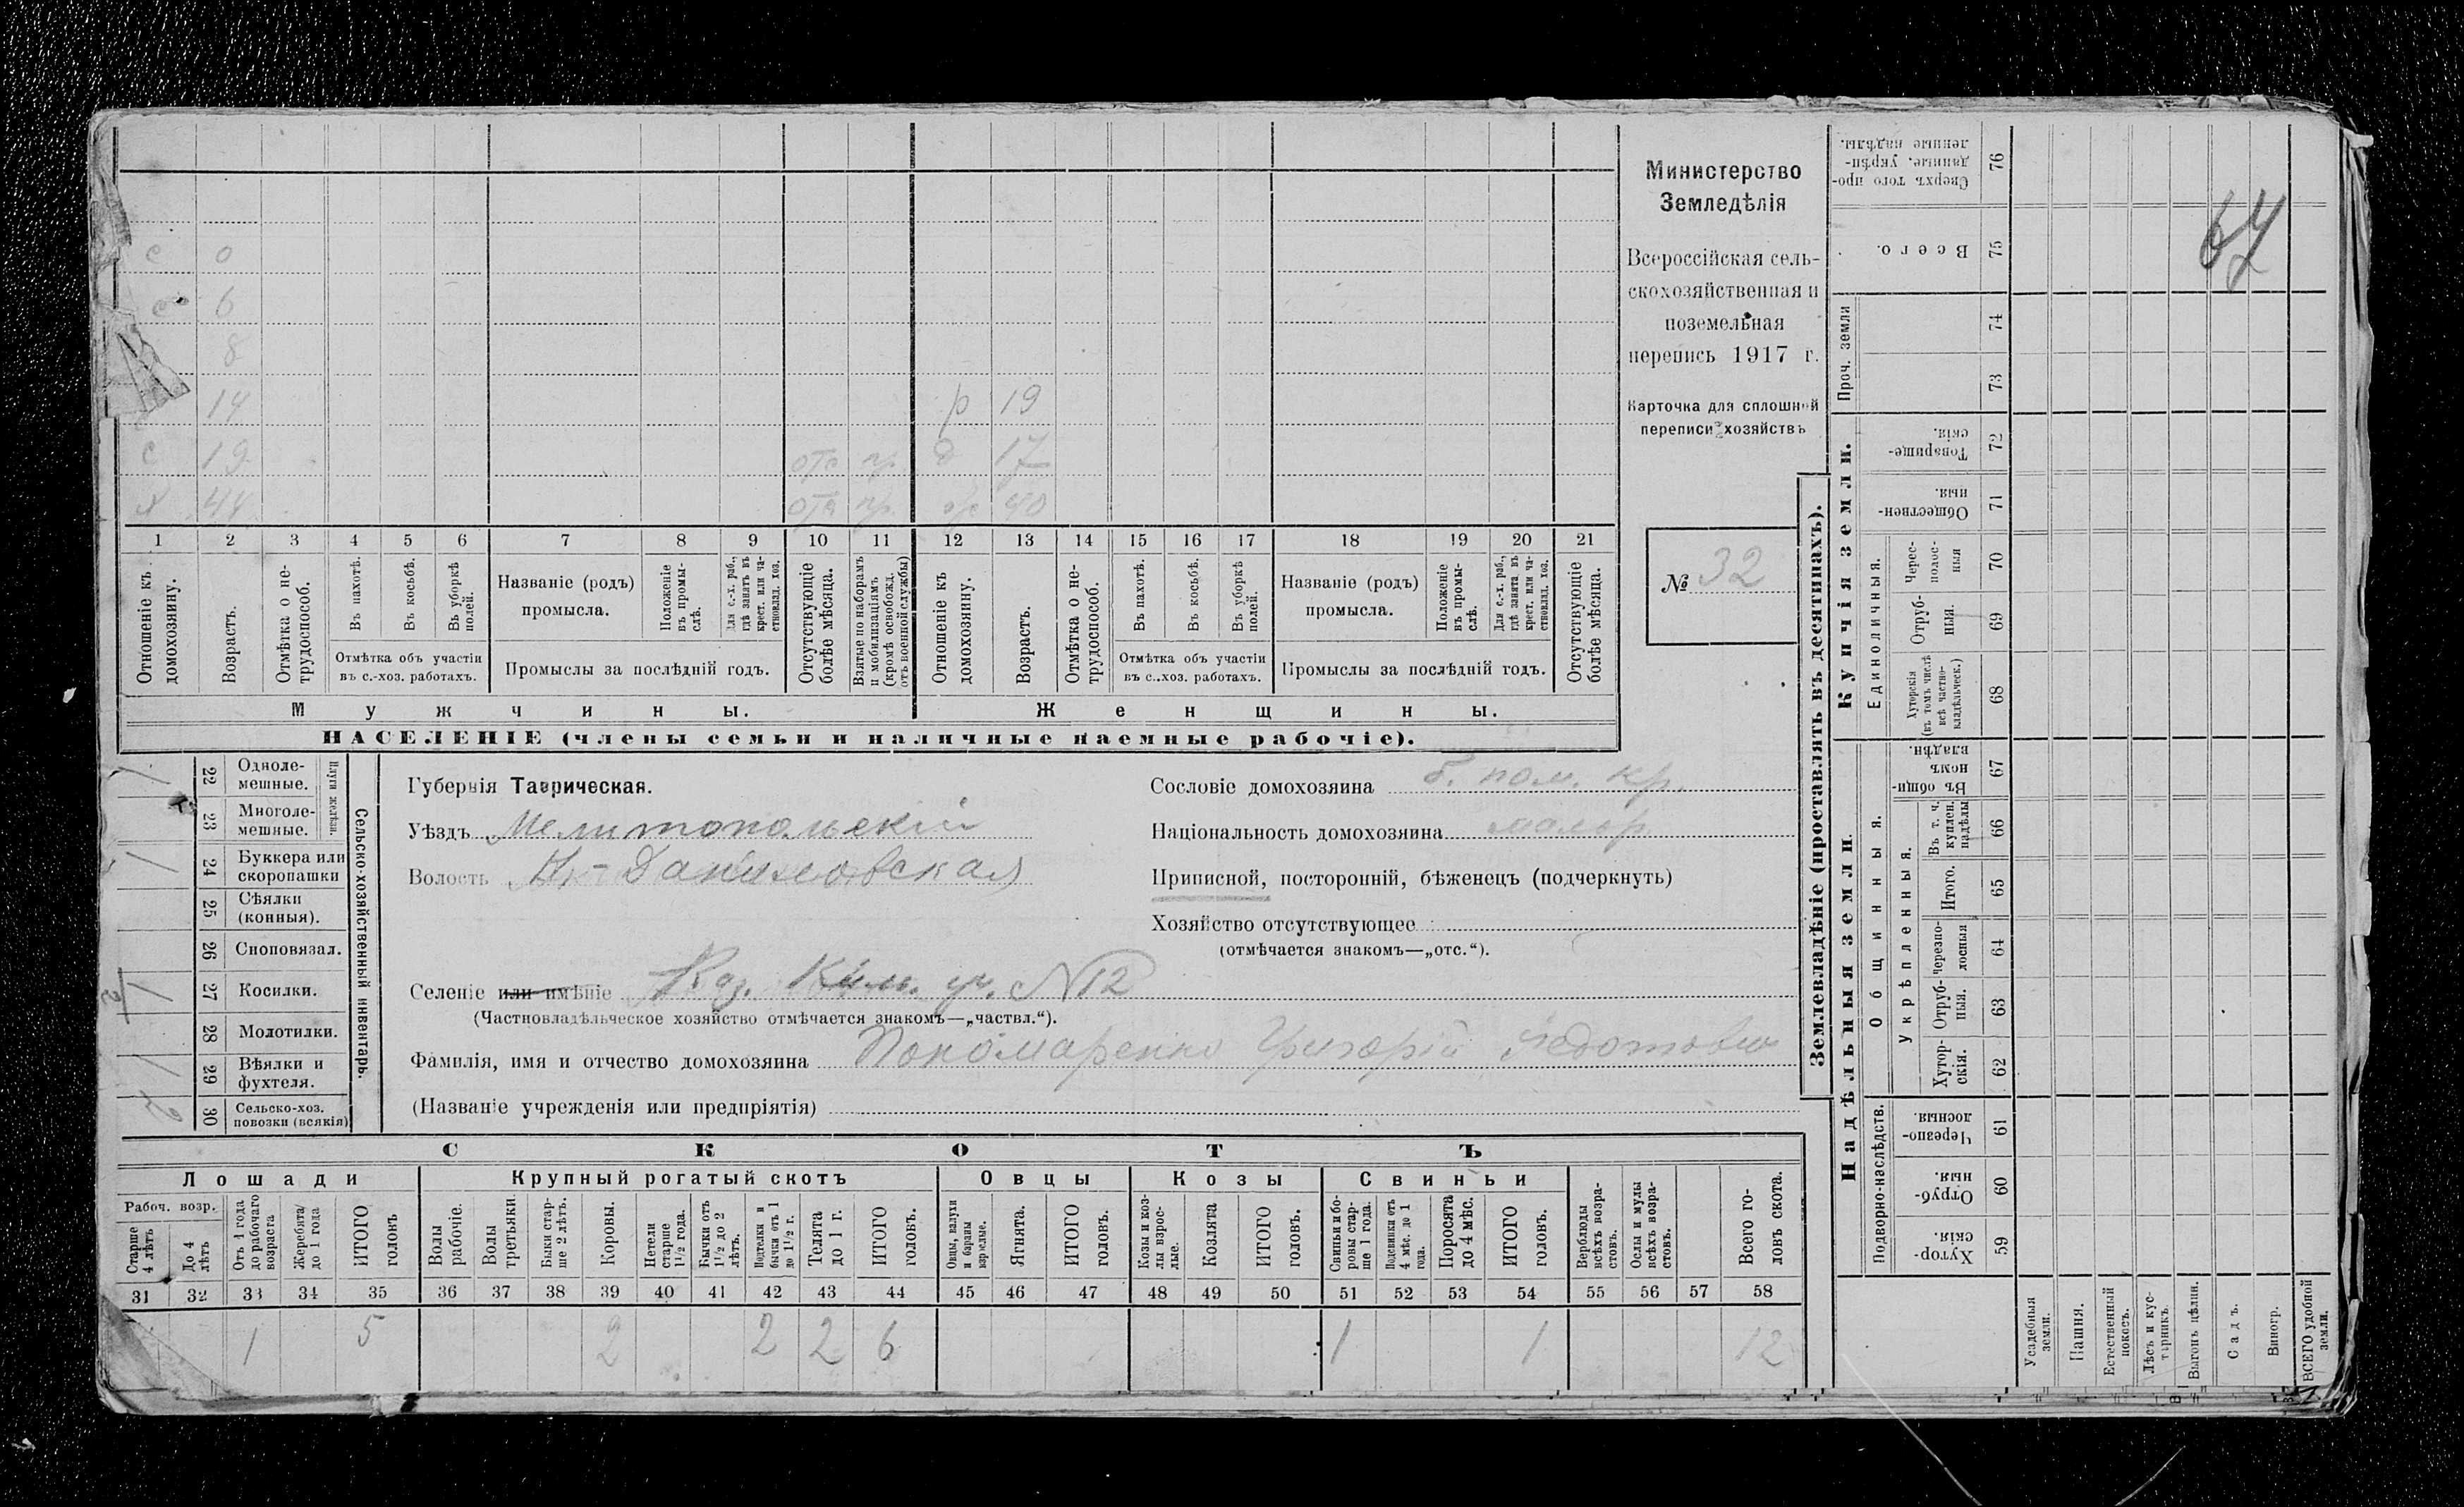 Министерство
Земледѣлія
Всероссійская сель-
скохозяйственная и
поземельная
перепись 1917 г.
Карточка для сплошной
переписи хозяйствъ
№ 32
67
с 0
6
8
14 р 19
с 19 отс пр. д 17
х 44 отс пр. ж 40
1 2 3 4 5 6 7 8 9 10 11 12 13 14 15 16 17 18 19 20 21
Отношеніе къ домохозяину.
Возрастъ.
Отмѣтка о не-трудоспособ.
Въ пахотѣ.
Въ косьбѣ.
Въ уборкѣ полей.
Отмѣтка объ участіи
въ с.-хоз. работахъ.
Названіе (родъ)
промысла.
Положеніе въ промы-слѣ.
Для с.-х. раб., гдѣ занятъ въ крест. или ча-стновлад. хоз.
Промыслы за послѣдній годъ.
Отсутствующіе болѣе мѣсяца.
Взятые по наборамъ и мобилизаціямъ (кромѣ освобожд. отъ военной службы)
Отношеніе къ домохозяину.
Возрастъ.
Отмѣтка о не-трудоспособ.
Въ пахотѣ.
Въ косьбѣ.
Въ уборкѣ полей.
Отмѣтка объ участіи
въ с..хоз. работахъ.
Названіе (родъ)
промысла.
Положеніе въ промы-слѣ.
Для с.-х. раб., гдѣ занята въ крест. или ча-стновлад. хоз.
Промыслы за послѣдній годъ.
Отсутствующіе болѣе мѣсяца.
Мужчины. Женщины.
НАСЕЛЕНІЕ (члены семьи и наличные наемные рабочіе).
Сельско-хозяйственный инвентарь.
Плуги желѣзн.
22 Одноле-мешные. 1
23 Многоле-мешные.
24 Буккера или скоропашки 1
25 Сѣялки (конныя).
26 Сноповязал.
27 Косилки.
28 Молотилки.
29 Вѣялки и фухтеля. 1
30 Сельско-хоз. повозки (всякія)
Губернія Таврическая.
Уѣздъ Мелитопольскій
Волость Н.-Даниловская
Селеніе или имѣніе Каз. уч. №12
(Частновладѣльческое хозяйство отмѣчается знакомъ—„частвл.“).
Фамилія, имя и отчество домохозяина Пономаренко Григорій Федотовъ
(Названіе учрежденія или предпріятія)
Сословіе домохозяина б. пом. кр.
Національность домохозяина малор
Приписной, посторонній, бѣженецъ (подчеркнуть)
Хозяйство отсутствующее
(отмѣчается знакомъ—„отс.“).
СКОТЪ
Лошади Крупный рогатый скотъ Овцы Козы Свиньи
Рабоч. возр.
Старше 4 лѣтъ
До 4 лѣтъ
Отъ 1 года до рабочаго возраста
Жеребята до 1 года
ИТОГО головъ
Волы рабочіе.
Волы третьяки.
Быки стар-ше 2 лѣтъ.
Коровы.
Нетели старше 1 1/2 года.
Бычки отъ 1 1/2 до 2 лѣтъ.
Подтелки и бычки отъ 1 до 1 1/2 г.
Телята до 1 г.
ИТОГО головъ.
Овцы, валухи и бараны взрослые.
Ягнята.
ИТОГО головъ.
Козы и коз-лы взрос-лые.
Козлята
ИТОГО головъ.
Свиньи и бо-ровы стар-ше 1 года.
Подсвинки отъ 4 мѣс. до 1 года.
Поросята до 4 мѣс.
ИТОГО головъ.
Верблюды всѣхъ возра-стовъ.
Ослы и мулы всѣхъ возра-стовъ.
Всего го-ловъ скота.
31 32 33 34 35 36 37 38 39 40 41 42 43 44 45 46 47 48 49 50 51 52 53 54 55 56 57 58
1 5 2 2 2 6 1 1 12
Землевладѣніе (проставлять въ десятинахъ).
Надѣльныя земли.
Купчія земли.
Проч. земли
Подворно-наслѣдств.
Общинныя.
Укрѣпленныя.
Единоличныя.
76 Сверхъ того про-данные, укрѣп-ленные надѣлы.
75 Всего.
74
73
72 Товарище-скія.
71 Обществен-ныя.
70 Черес-полос-ныя
69 Отруб-ныя.
68 Хуторскія (въ томъ числѣ всѣ частно-владѣльческ.)
67 Въ общин-номъ владѣн.
66 Въ т. ч. куплен. надѣлы
65 Итого.
64 Черезпо-лосныя
63 Отруб-ныя.
62 Хутор-скія.
61 Черезпо-лосныя
60 Отруб-ныя.
59 Хутор-скія.
Усадебныя земли.
Пашня.
Естественный покосъ.
Лѣсъ и кус-тарникъ.
Выгонъ цѣлин.
Садъ.
Виногр.
ВСЕГО удобной земли.